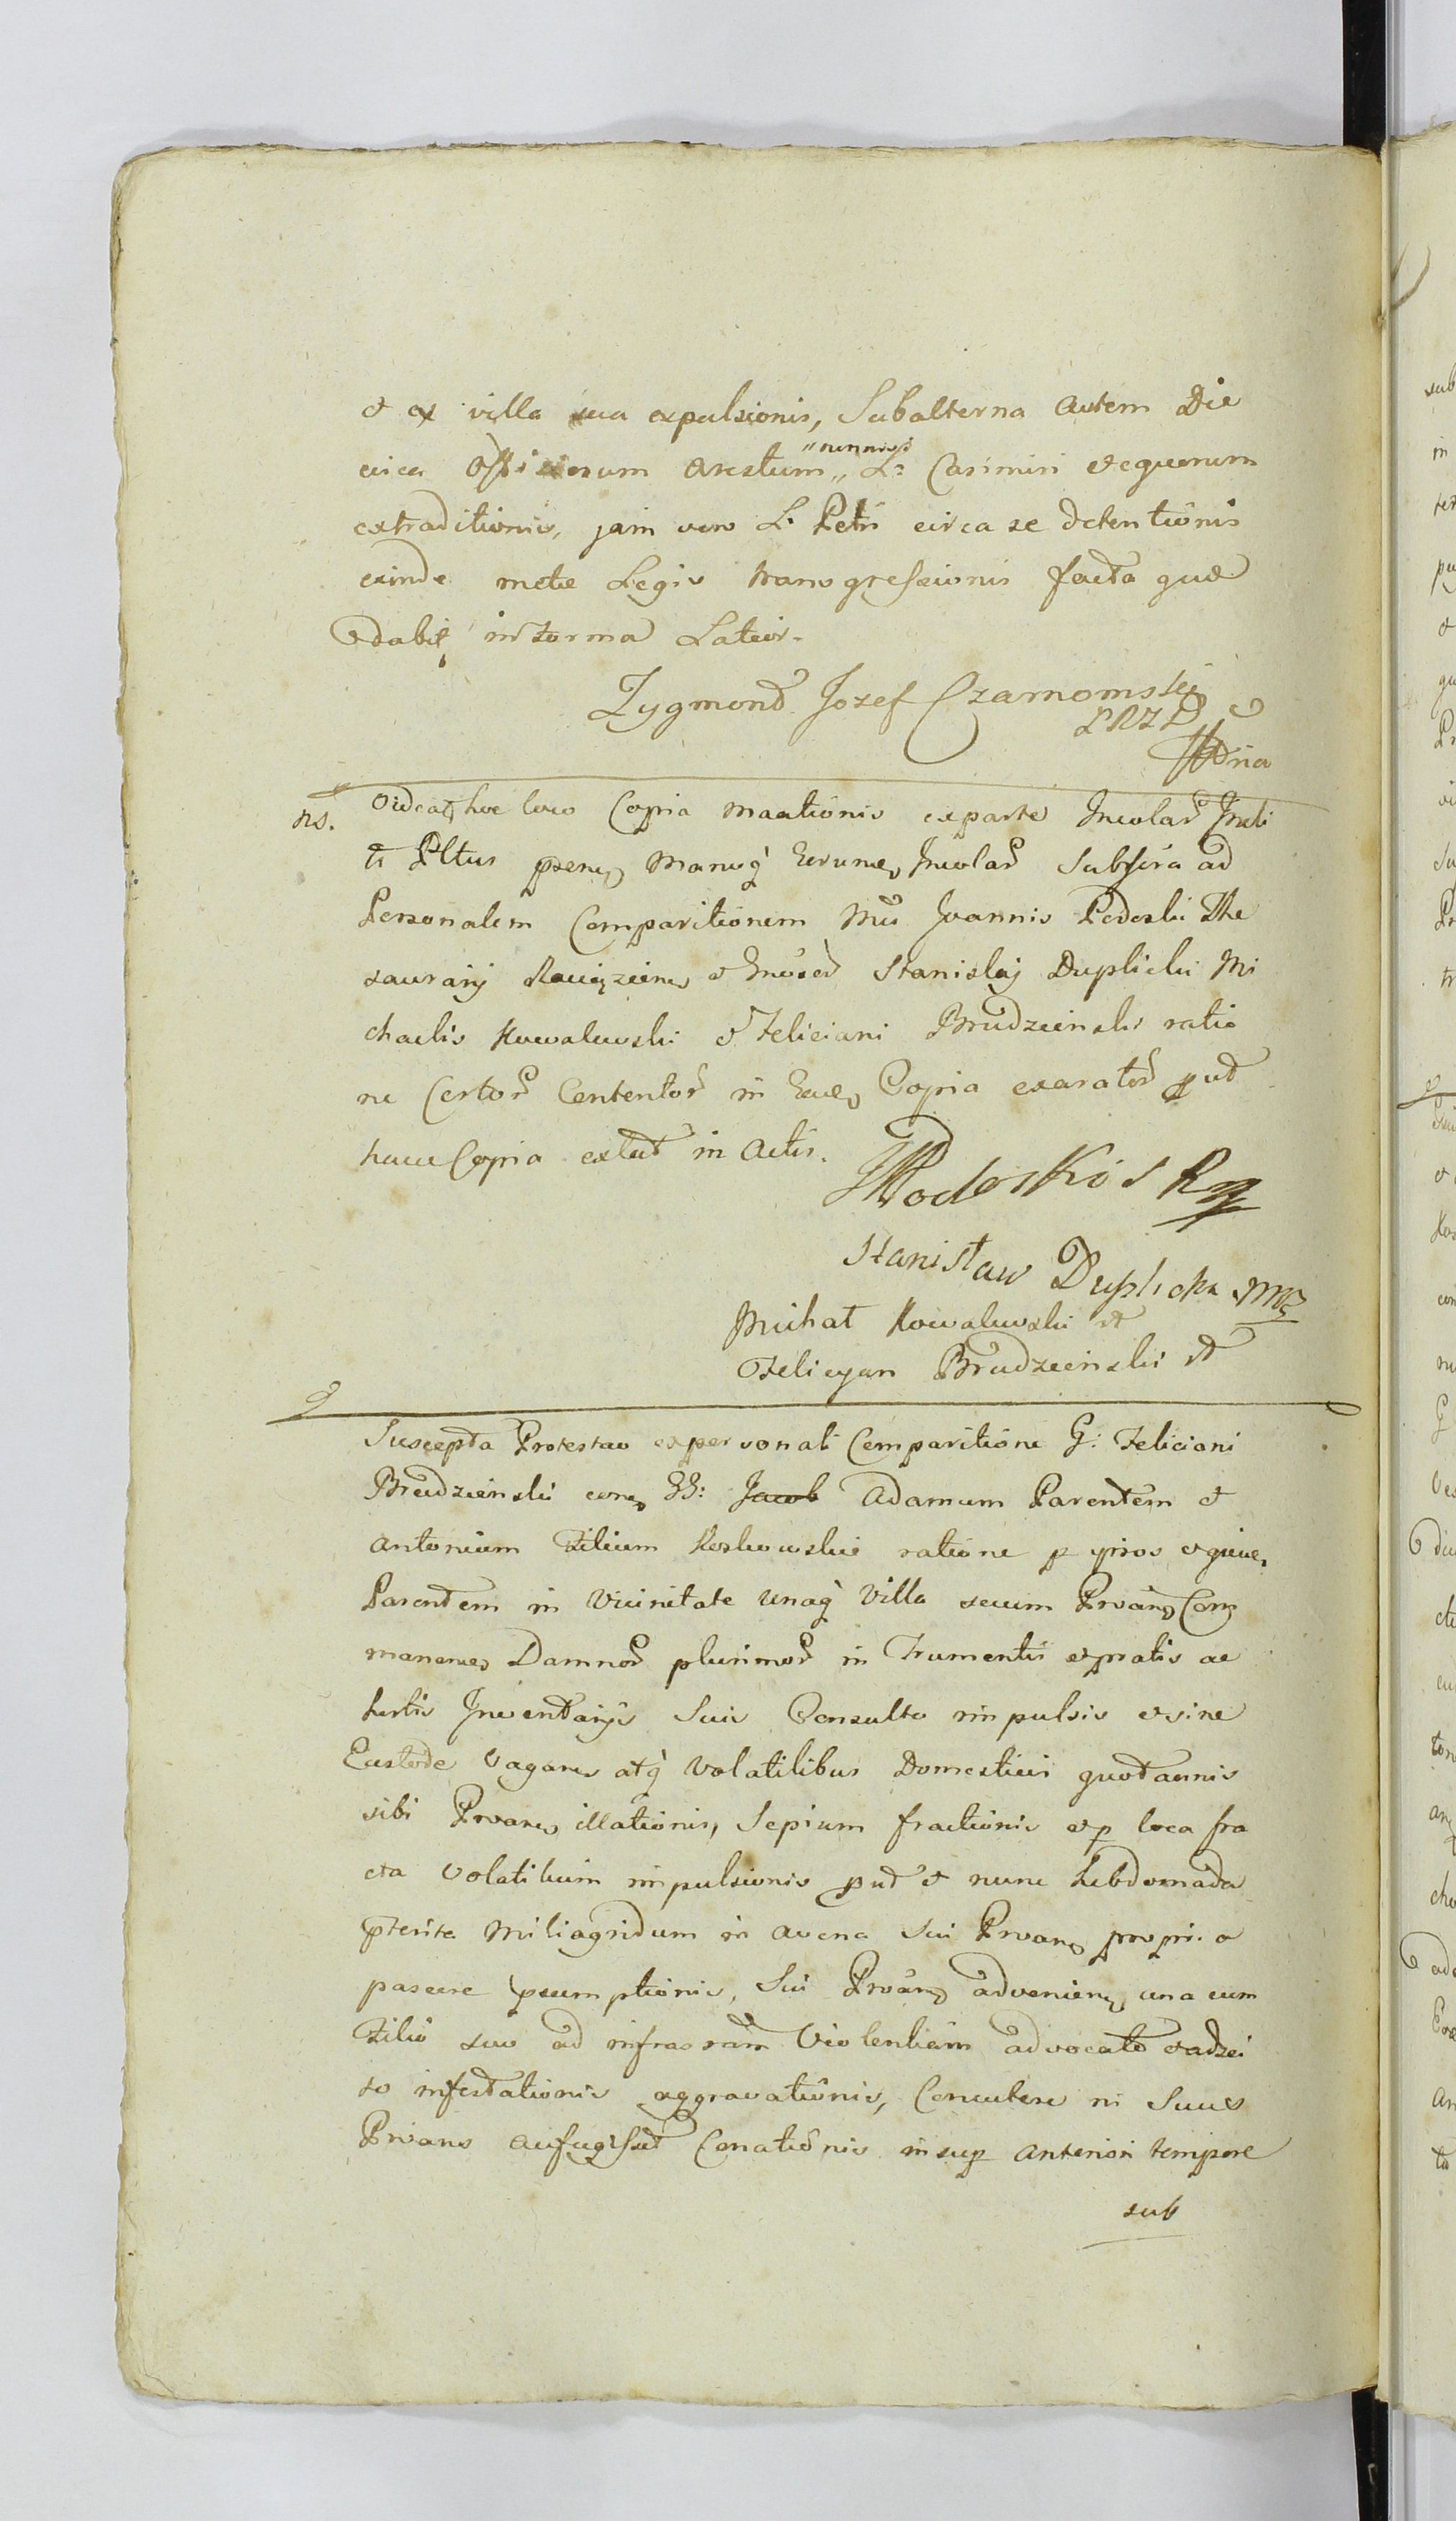 et ex villa sua expulsionis, Subalterna autem Die
circa Officiosum arestum,, L: Casimiri et equorum
"nunnisi
extraditionis, jam vero L. Petri circa se detentionis
exinde metae Legis transgressionis facta quae
dabit in forma Latior.
Zygmond Jozef Czarnomski
ns. Videat hoc loco Copia Maãtionis ex parte Incolar Incli
ti Pltus psene Manuq Eorume Incolar Subscra ad
Personalem Comparitionem Mci Joannis Podoski The
saurarij Raciązien et Gnosed Stanislaj Duplicki Mi
chaelis Kowalewski et Feliciani Brudzienski ratio
ne Certor Contentor in Ead Copia exarator put
haec Copia extat in Actis.
JPodoski S R
Stanisław Duplicki mp
Michał Kowalewski
Felicyan Brudzienski
Suscepta Protestao ex personali Comparitione G: Feliciani
Brudzienski con GG: Jacob Adamum Parentem et
Antonium Filium Koskowskie ratione p ipsos et quive
Parentem in Vicinitate unaq Villa secum Prvan Com
manen Damnor plurimor in Frumentis et pratis ac
hortis Inventarijs Suis Consulto impulsis et sine
Custode Vagan atq Volatilibus Domesticis quotannis
sibi Prvan illationis, Sepium fractionis et p loca fra
cta Volatilium impulsionis put et nunc hebdomada
pterita Miliagridum in avena Sui Prvan propri et
pascere psumptionis, Sui Prvan advenien una cum
Filio suo ad infrasram Violentiam advocato et adsci
to infestationis aggravationis, Concutere ni Suus
Prvans aufugisset Conationis insup anteriori tempore
sub